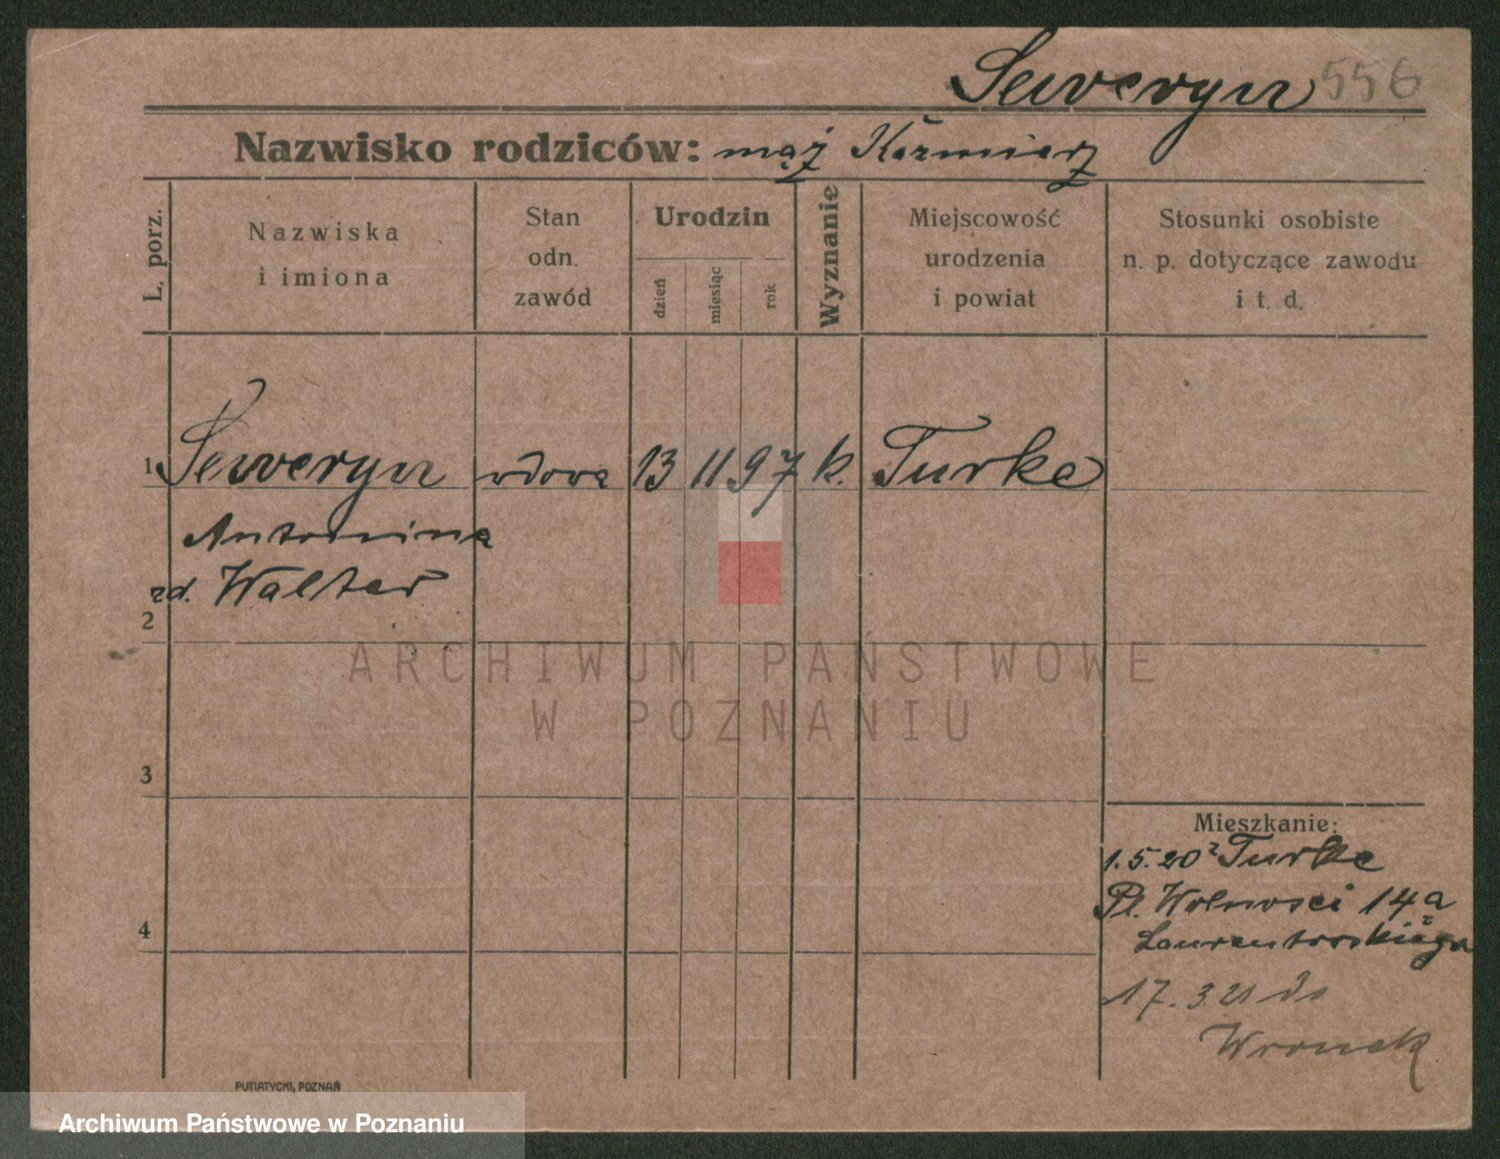 Seweryn 556
Nazwisko rodziców: mąż Kazmierz
L. porz.
Nazwiska
i imiona
Stan
odn.
zawód
Urodzin
dzień
miesiąc
rok
Wyznanie
Miejscowość
urodzenia
i powiat
Stosunki osobiste
n. p. dotyczące zawodu
i t. d.
1 Seweryn wdowa 13 11 97 k. Turke
Antonina
zd. Walter
2
ARCHIWUM PAŃSTWOWE
W POZNANIU
3
Mieszkanie:
1.5.20 z Turke
Pl. Wolnosci 14a
4
17.3.21 do
Wronek
PUTIATYCKI, POZNAŃ
Archiwum Państwowe w Poznaniu